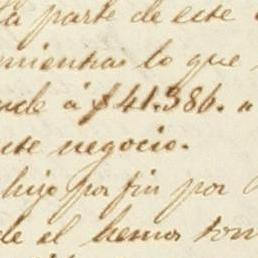 la parte de este
mientras lo que
nde á $41.386. a
nte negocio.
hijo por fin por
de el hemos tom